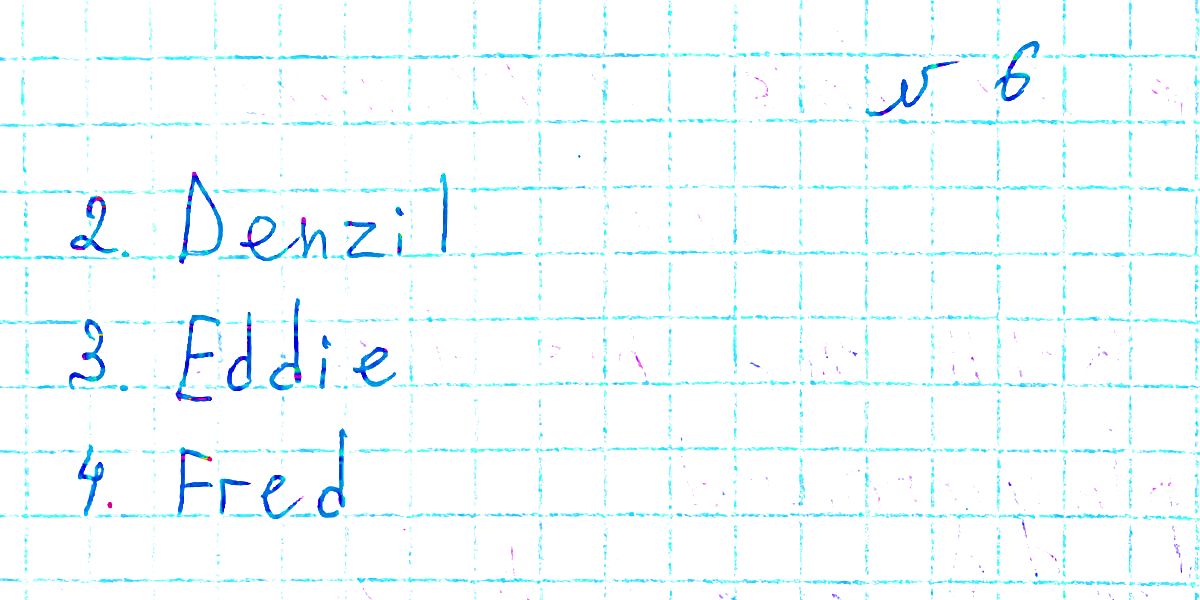 № 6
2. Denzil
3. Eddie
4. Fred